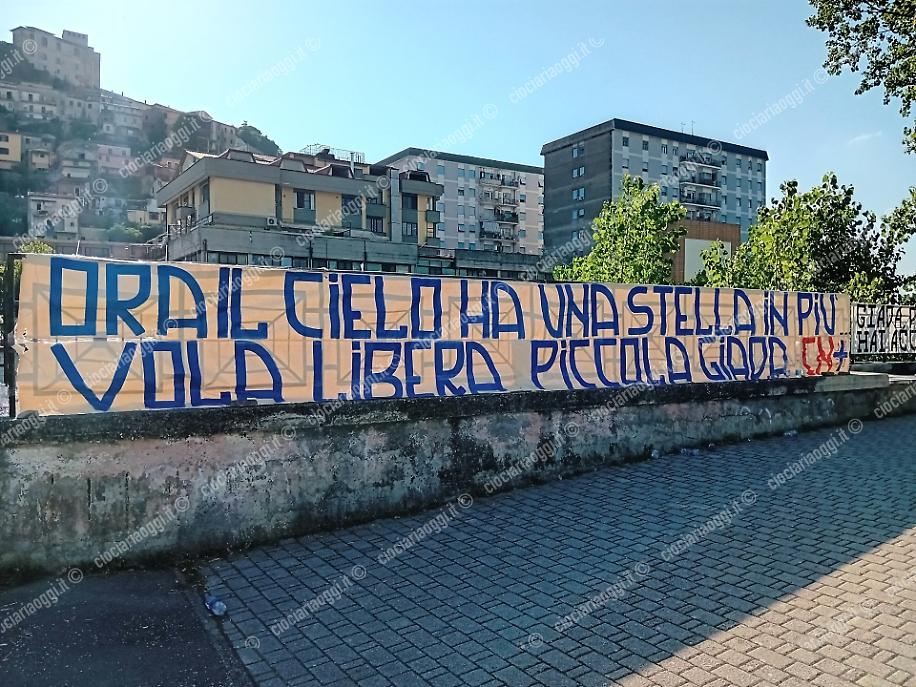 ORA IL CIELO HA UNA STELLA IN PIU
VOLA LIBERA PICCOLA GIADA. CN+
GIADA
HA
ciociariaoggi.it ©